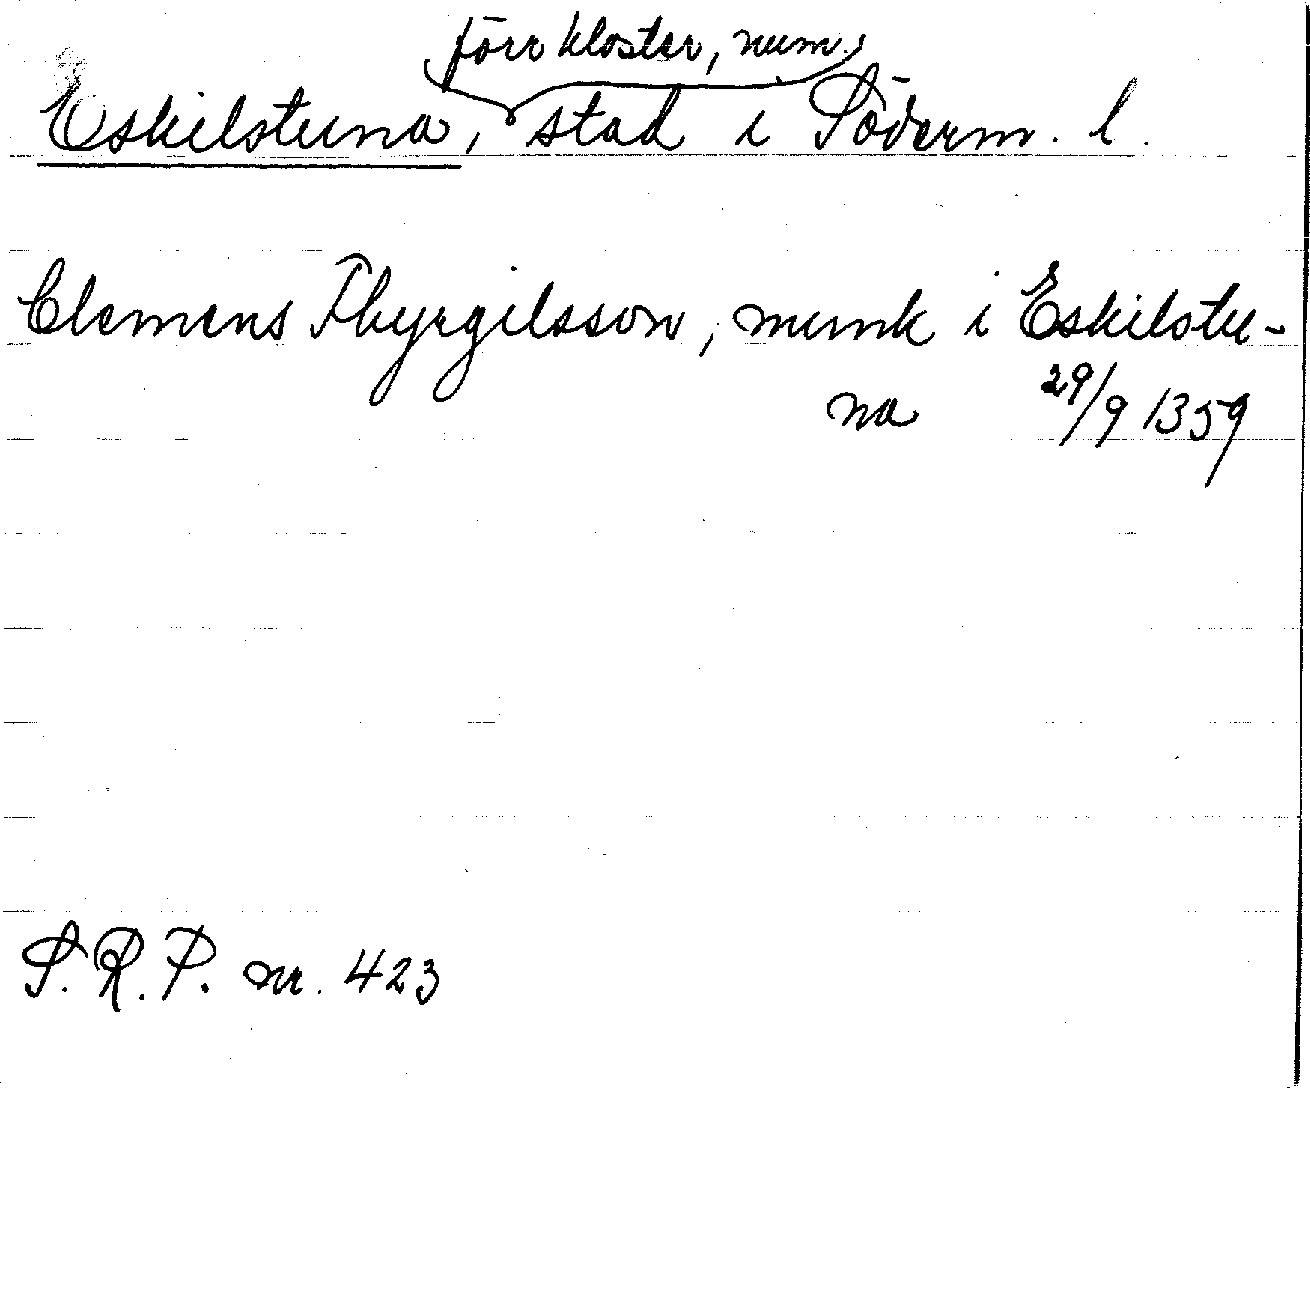 förr kloster, num.
Eskilstuna, stad i Söderm. l.
Clemens Thyrgilsson, munk i Eskilstu-
na 29/9 1359
S.R.P. nr. 423